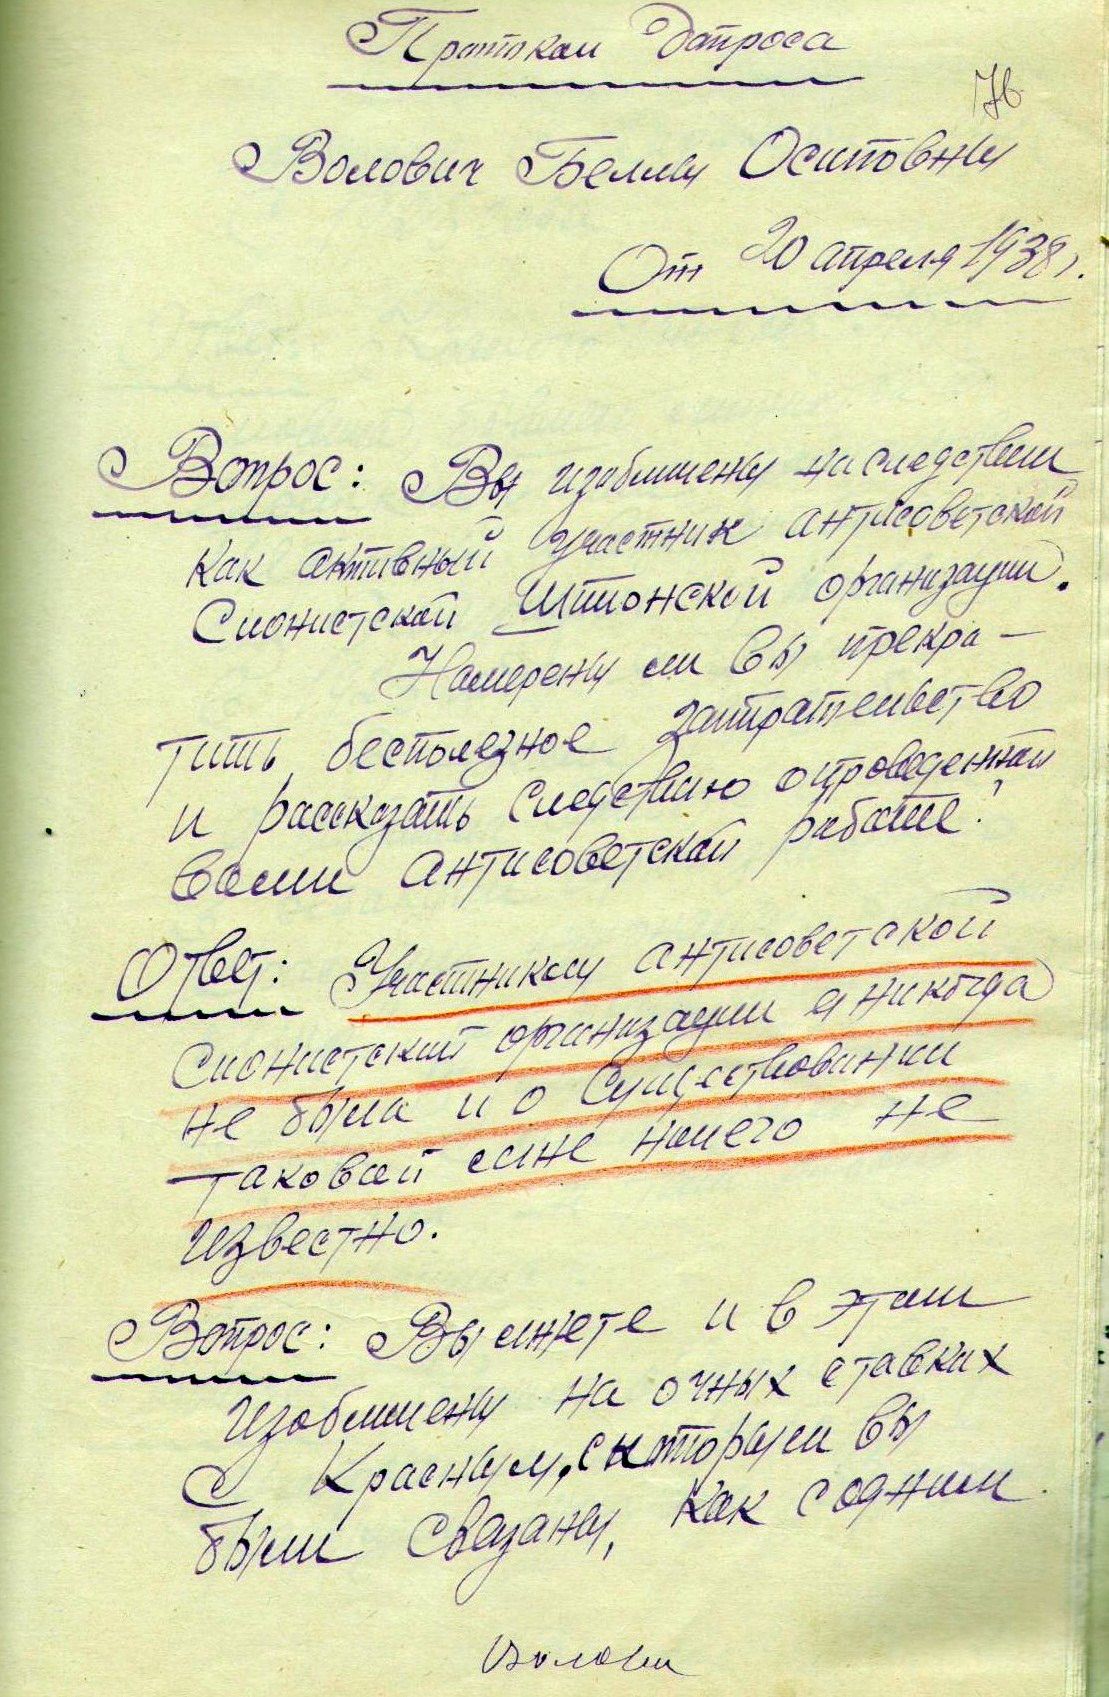 Протокол Допроса
76
Волович Беллы Осиповны
От 20 апреля 1938 г.
Вопрос: Вы изобличены на следствии
как активный участник антисоветской
Сионистской Шпионской организации.
Намерены ли Вы прекра-
тить бесполезное запирательство
и рассказать следствию о проведенной
Вами антисоветской работе?
Ответ: Участником антисоветской
сионисткий организации я никогда
не была и о существовании
таковой мне ничего не
известно.
Вопрос: Вы лжете и в этом
изобличены на очных ставках
с Красным, с которым вы
были связаны, как с одним
Волови